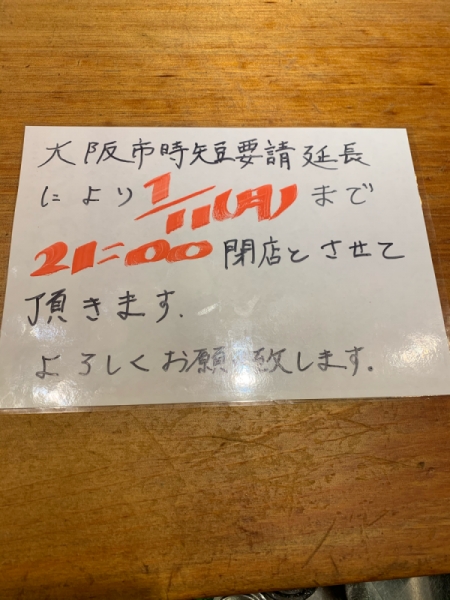 大阪市時短要請延長
により1/11(月)まで
21:00閉店とさせて
頂きます.
よろしくお願い致します.